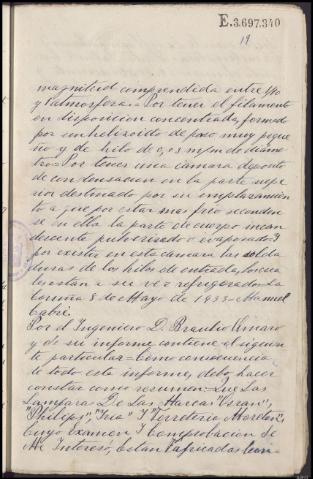 E.3.697.340
19
magnitud comprendida entre 1/10
y 1 atmosfera.- Por tener el filamento
en disposicion concentrada, formado
por un helizoide de paso muy peque
ño y de hilo de 0,03 m/m de diáme
tro= Por tener una cámara deposito
de condensacion en la parte supe
rior destinado por su emplazamien
to a que por estar mas frio se conden
se en ella la parte de cuerpo incan
descente pulverizado o evaporado= Y
por existir en esta camara las solda
duras de los hilos de entrada, los cua
les estan a su vez refrigerados= La
Coruña 8 de Mayo de 1933= Manuel
Cabré.
Por el Ingeniero D. Braulio Amaro
y de su informe contiene el siguien
te particular= Como consecuencia
de todo este informe, debo hacer
constar como resumen= Que Las
Lamparas De Las Marcas "Osran",
"Philips", "Iria" Y "Ferreteria Moretón",
Cuyo Examen Y Comprobacion Se
Me Intereso, Estan Fabricadas Con-